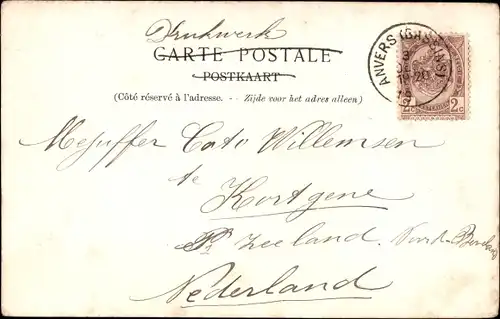 Drukwerk
CARTE POSTALE
POSTKAART
(Côté réservé à l'adresse. - Zijde voor het adres alleen)
ANVERS
2c 2c
Mejuffer Cato Willemsen
te
Kortgene
Zeeland. Noord-Beveland
Nederland